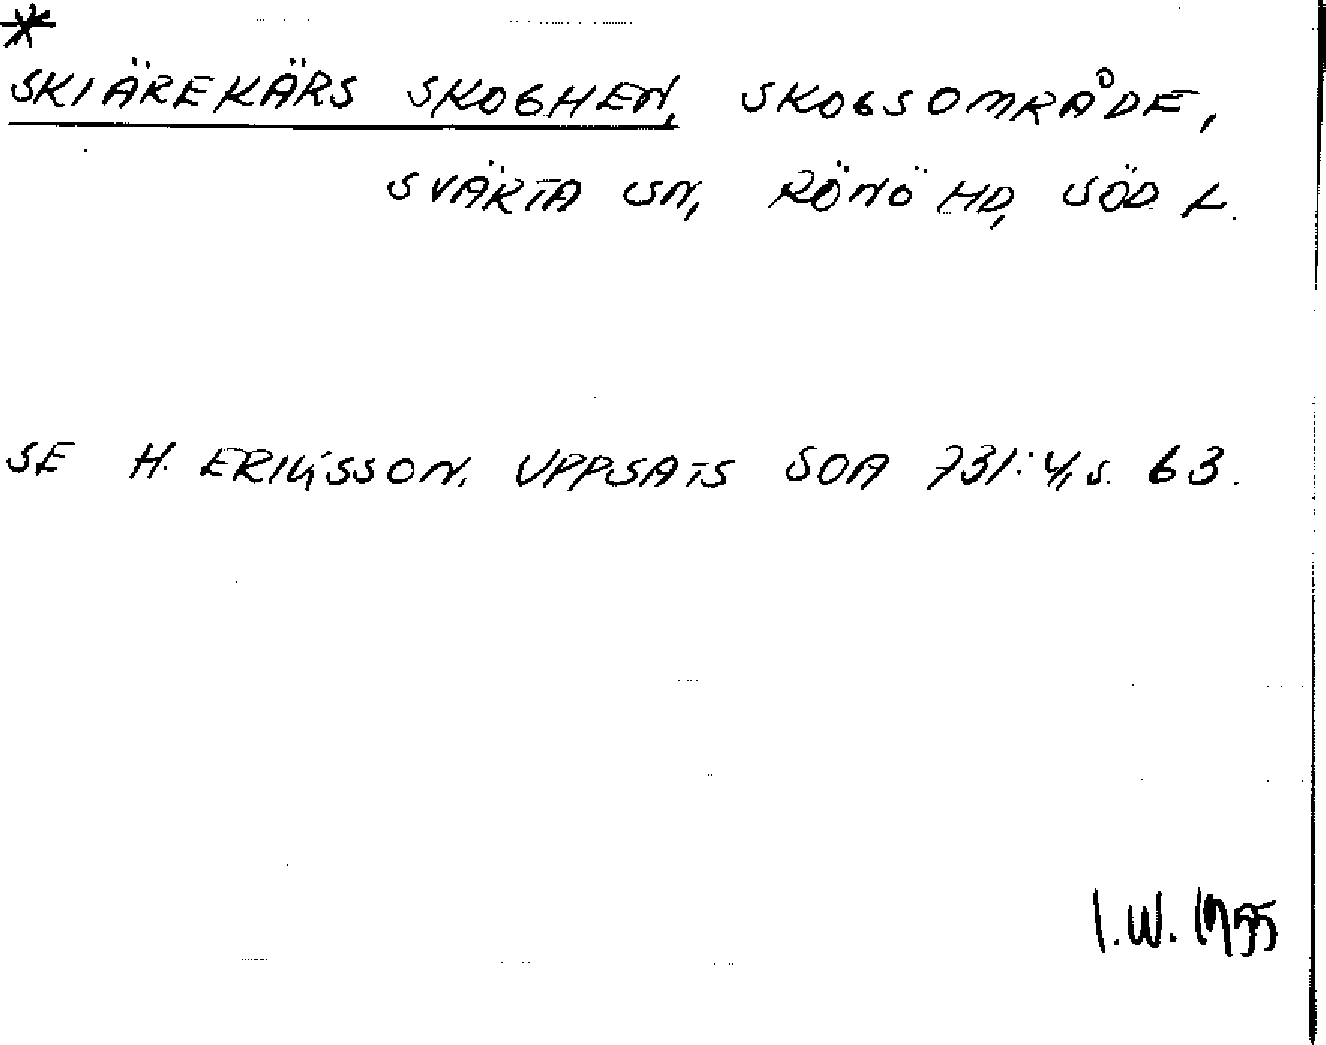 *
SKIÄREKÄRS SKOGHEN, SKOGSOMRÅDE,
SVÄRTA SN, RÖNÖ HD, SÖD L.
SE H. ERIKSSON. UPPSATS SOA 731:4, s. 63.
I.W. 1955